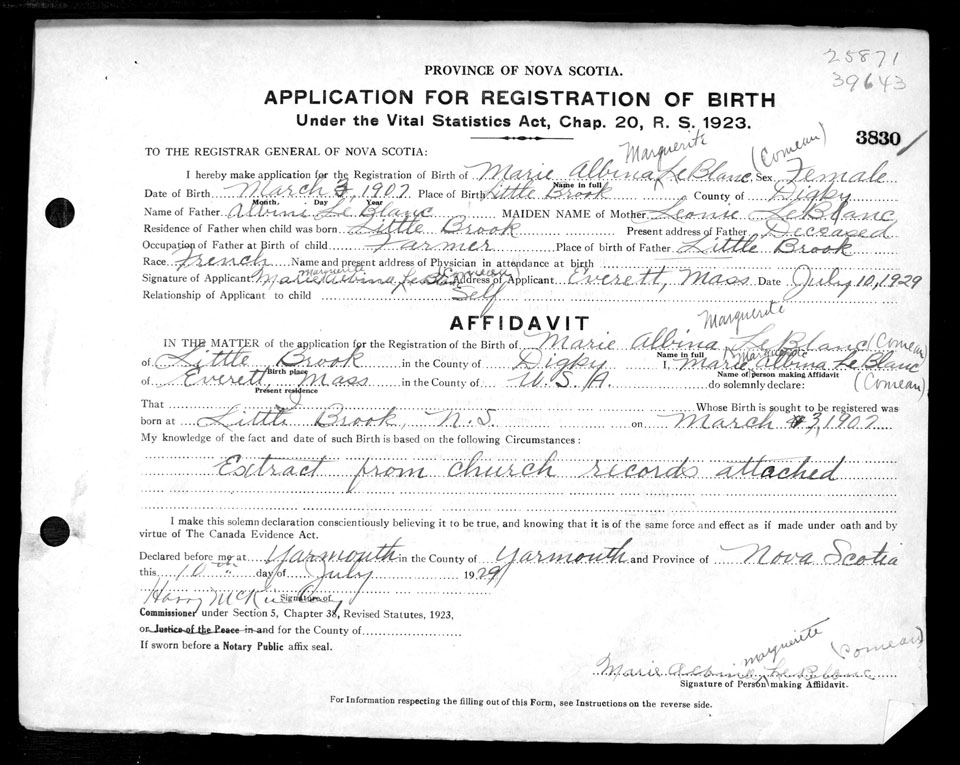 25871
39643
PROVINCE OF NOVA SCOTIA.
APPLICATION FOR REGISTRATION OF BIRTH
Under the Vital Statistics Act, Chap. 20, R. S. 1923.
3830
TO THE REGISTRAR GENERAL OF NOVA SCOTIA:
Marguerite (Comeau)
I hereby make application for the Registration of Birth of Marie Albina LeBlanc Sex Female
Name in full
Date of Birth March 3, 1907 Place of Birth Little Brook County of Digby
Month. Day Year
Name of Father Albini LeBlanc MAIDEN NAME of Mother Leonie LeBlanc
Residence of Father when child was born Little Brook Present address of Father Deceased
Occupation of Father at Birth of child Farmer Place of birth of Father Little Brook
Race French Name and present address of Physician in attendance at birth
Marguerite (Comeau)
Signature of Applicant Marie Albina LeBlanc Address of Applicant Everett, Mass Date July 10, 1929
Relationship of Applicant to child Self
AFFIDAVIT
Marguerite
IN THE MATTER of the application for the Registration of the Birth of Marie Albina LeBlanc (Comeau)
Name in full Marguerite
of Little Brook in the County of Digby I, Marie Albina LeBlanc
Birth place Name of person making Affidavit
of Everett, Mass in the County of U.S.A. do solemnly declare: (Comeau)
Present residence
That Whose Birth is sought to be registered was
born at Little Brook, N.S. on March 3, 1907
My knowledge of the fact and date of such Birth is based on the following Circumstances:
Extract from church records attached
I make this solemn declaration conscientiously believing it to be true, and knowing that it is of the same force and effect as if made under oath and by
virtue of The Canada Evidence Act.
Declared before me at Yarmouth in the County of Yarmouth and Province of Nova Scotia
this 10th day of July 1929
Harry
Signature of
Commissioner under Section 5, Chapter 38, Revised Statutes, 1923,
or Justice of the Peace in and for the County of
If sworn before a Notary Public affix seal.
marguerite (Comeau)
Marie Albina LeBlanc
Signature of Person making Affidavit.
For Information respecting the filling out of this Form, see Instructions on the reverse side.